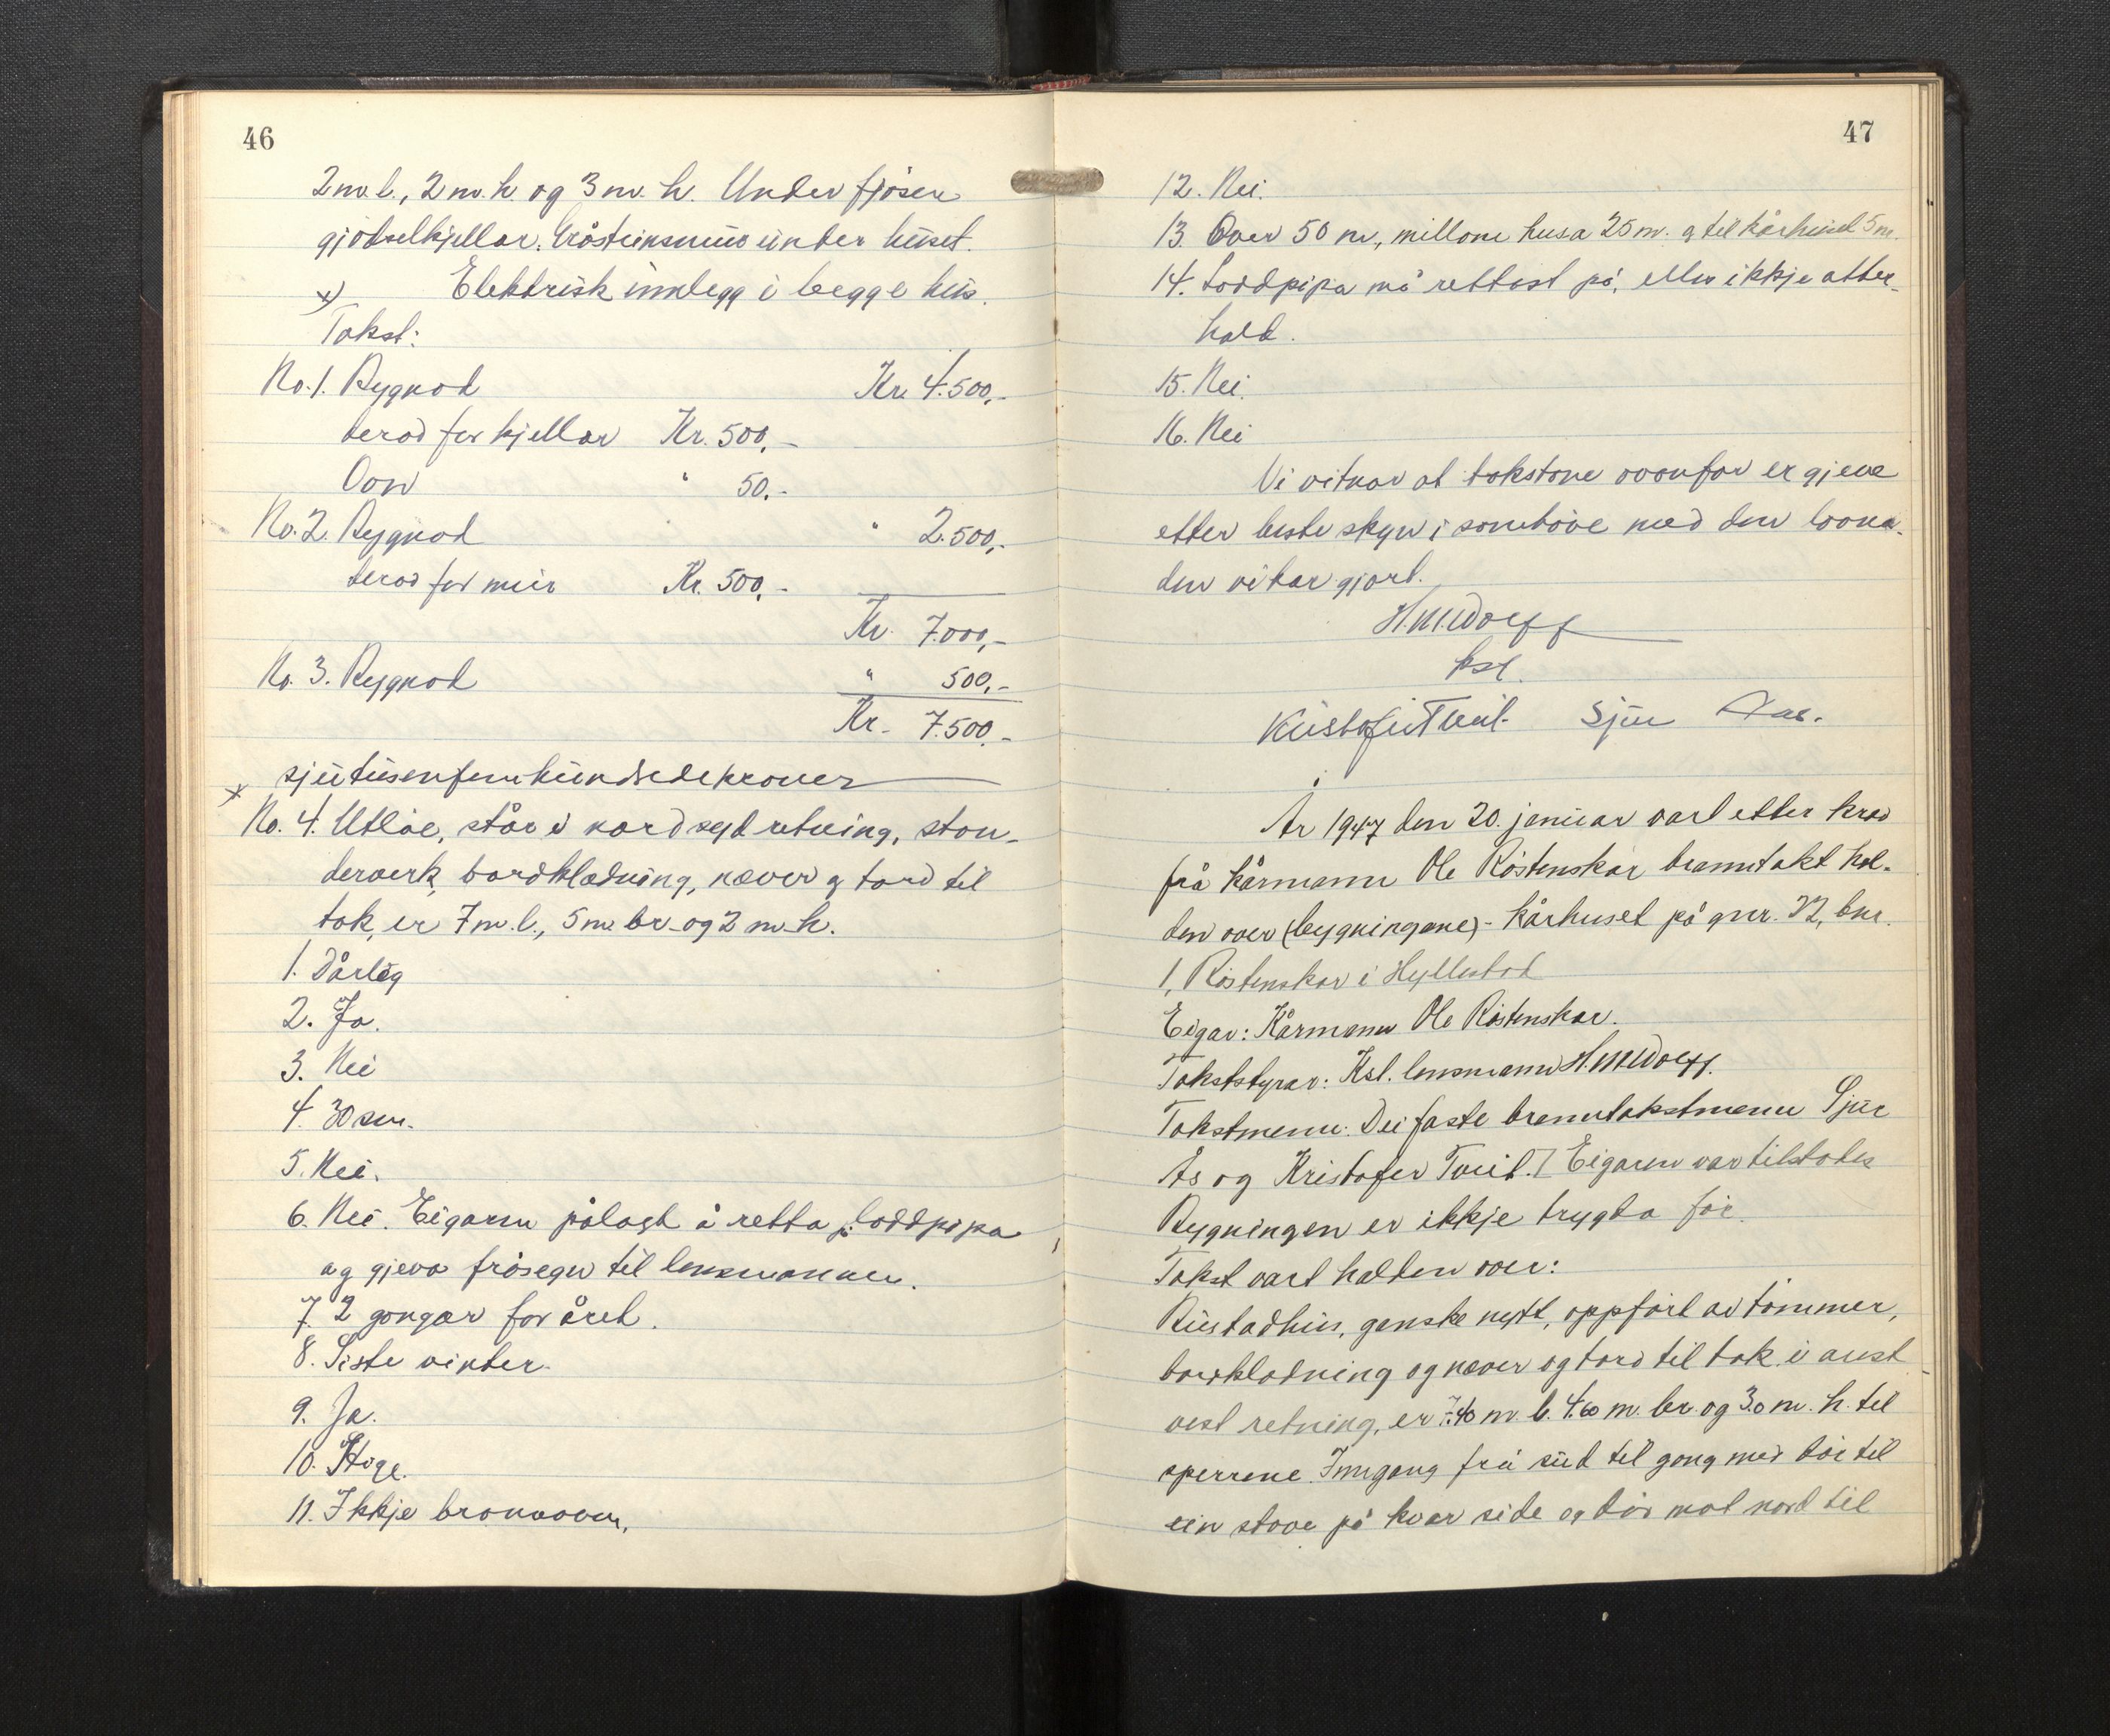 46
2 m. l., 2 m. h. og 3 m. h. Under fjösen
gjödselkjellar. Gråsteinsmur under huset.
x) Elektrisk innlegg i begge hus.
Takst:
No. 1. Bygnad Kr. 4.500,-
derav for kjellar Kr. 500,-
Ovn " 50.-
No. 2. Bygnad " 2.500,-
derav for mur Kr. 500,-
Kr. 7.000,-
No. 3. Bygnad " 500,-
Kr. 7.500.-
x sjutusenfemhundredekroner
No. 4. Utløe, står i nord syd retning, sten-
derverk, bordklædning, næver og torv til
tak, er 7 m. l., 5 m. br. og 2 m. h.
1. Dårlig
2. Ja.
3. Nei
4. 30 cm.
5. Nei.
6. Nei. Eigaren pålagt å retta på loddpipa
og gjeva fråsegn til lensmannen.
7. 2 gongar for året.
8. Siste vinter.
9. Ja.
10. Stige.
11. Ikkje brannovn.
47
12. Nei.
13. Over 50 m, millom husa 25 m. og til kårhuset 5 m.
14. Loddpipa må rettast på, elles ikkje atter-
hald.
15. Nei.
16. Nei
Vi vitnar at takstane ovanfor er gjeve
etter beste skyn i samhöve med den lovna-
den vi har gjort.
H.M. Wolff
kst.
Kristofer Tveit. Sjur Aas.
År 1947 den 20. januar vart etter krav
frå kårmann Ole Röstenskar branntakt hal-
den over (bygningane) - kårhuset på gnr. 22, bnr.
1, Röstenskar i Hyllestad
Eigar: Kårmann Ole Röstenskar.
Takststyrar: Kst. lensmann H.M. Wolff.
Takstmenn: Dei faste branntakstmenn Sjur
Ås og Kristofer Tveit. / Eigaren var tilstades
Bygningen er ikkje trygda før.
Takst vart halden over:
Bustadhus, ganske nytt, oppfört av tömmer,
bordkladning og næver og torv til tak. i aust
vest retning, er 7.40 m. l. 4.60 m. br. og 3.0 m. h. til
sperrene. Inngang frå sud til gong med dör til
ein stove på kvar side og dör mot nord til